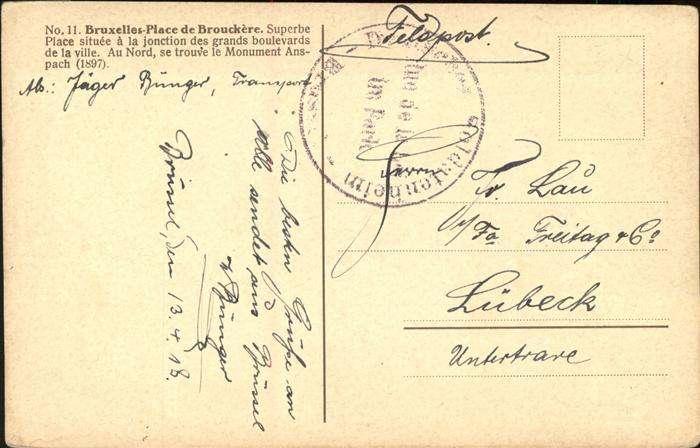 No. 11. Bruxelles-Place de Brouckère. Superbe
Place située à la jonction des grands boulevards
de la ville. Au Nord, se trouve le Monument Ans-
pach (1897).
Feldpost.
Ab: Jäger Bünger, Transport
Soldatenheim
rue de la
im Park
Brüssel, den 13.4.18.
Die besten Grüße an
alle sendet aus Brüssel
Bünger
Herrn
Fr. Lau
i/Fa Freitag & Co
Lübeck
Untertrave